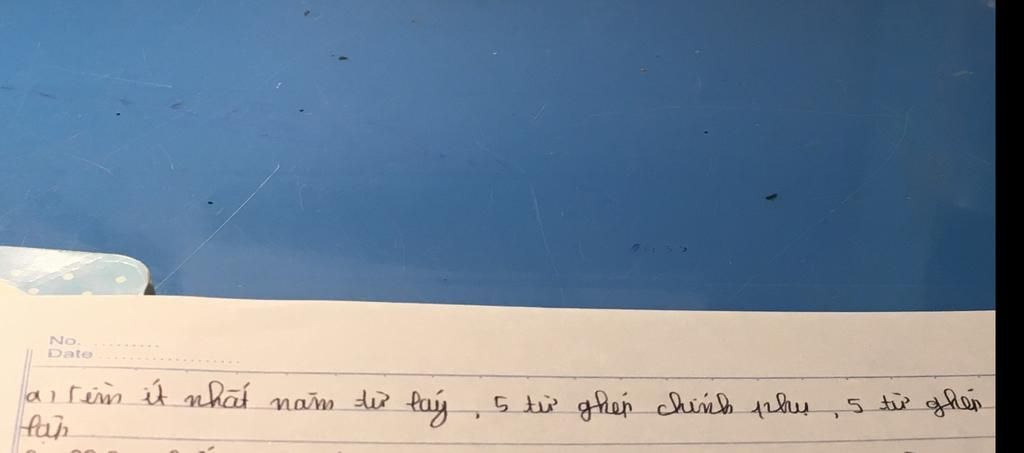 No. .........
Date ......................
a, Tìm ít nhất năm từ láy, 5 từ ghép chính phụ, 5 từ ghép
lập